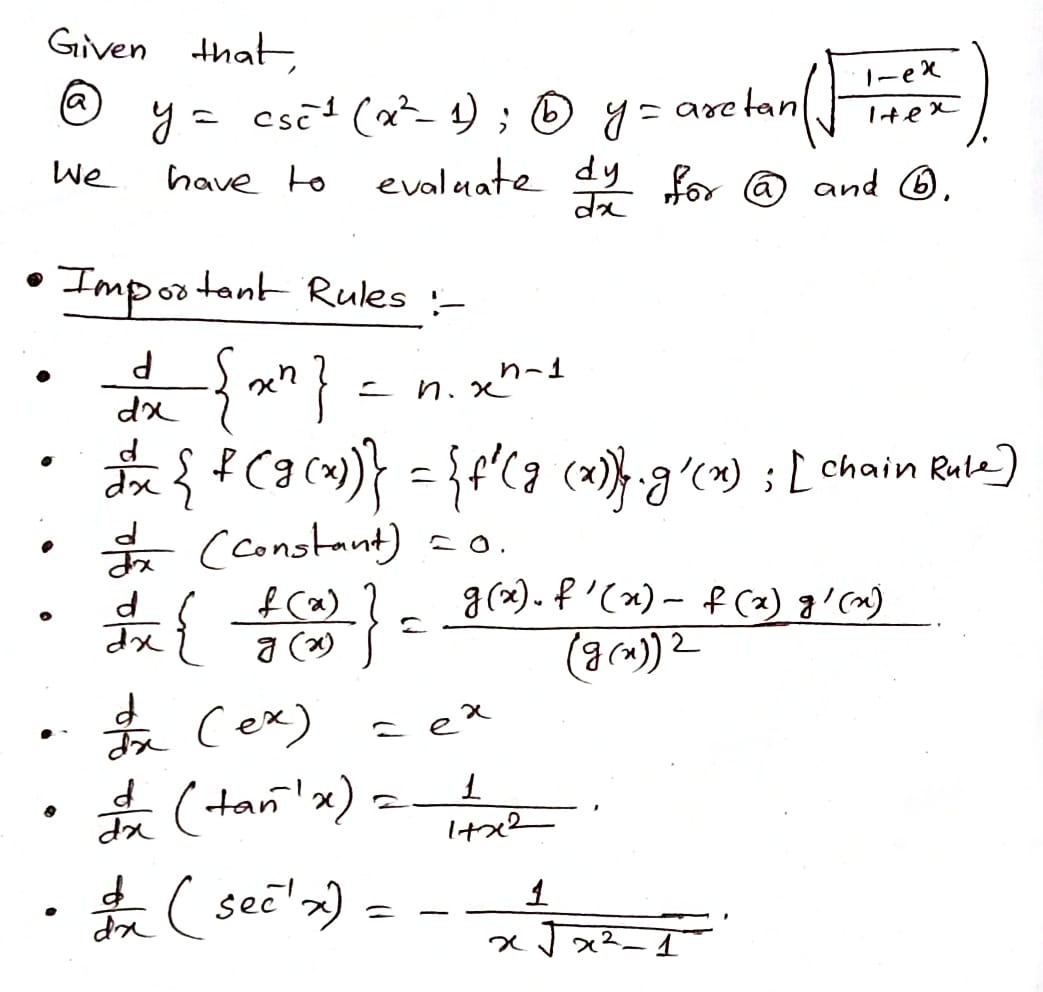 Given that,
ⓐ y = csc⁻¹ (x² - 1) ; ⓑ y = arctan(√((1-eˣ)/(1+eˣ))).
We have to evaluate dy/dx for ⓐ and ⓑ.
• Important Rules :-
• d/dx {xⁿ} = n. xⁿ⁻¹
• d/dx { f(g(x))} = {f'(g (x))}.g'(x) ; [chain Rule]
• d/dx (constant) = 0.
• d/dx { f(x)/g(x) } = (g(x). f'(x) - f(x) g'(x))/(g(x))².
• d/dx (eˣ) = eˣ
• d/dx (tan⁻¹x) = 1/(1+x²).
• d/dx (sec⁻¹x) = - 1/(x√(x²-1)).